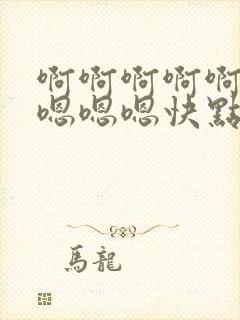 啊啊啊啊啊
嗯嗯嗯快點
馬龍